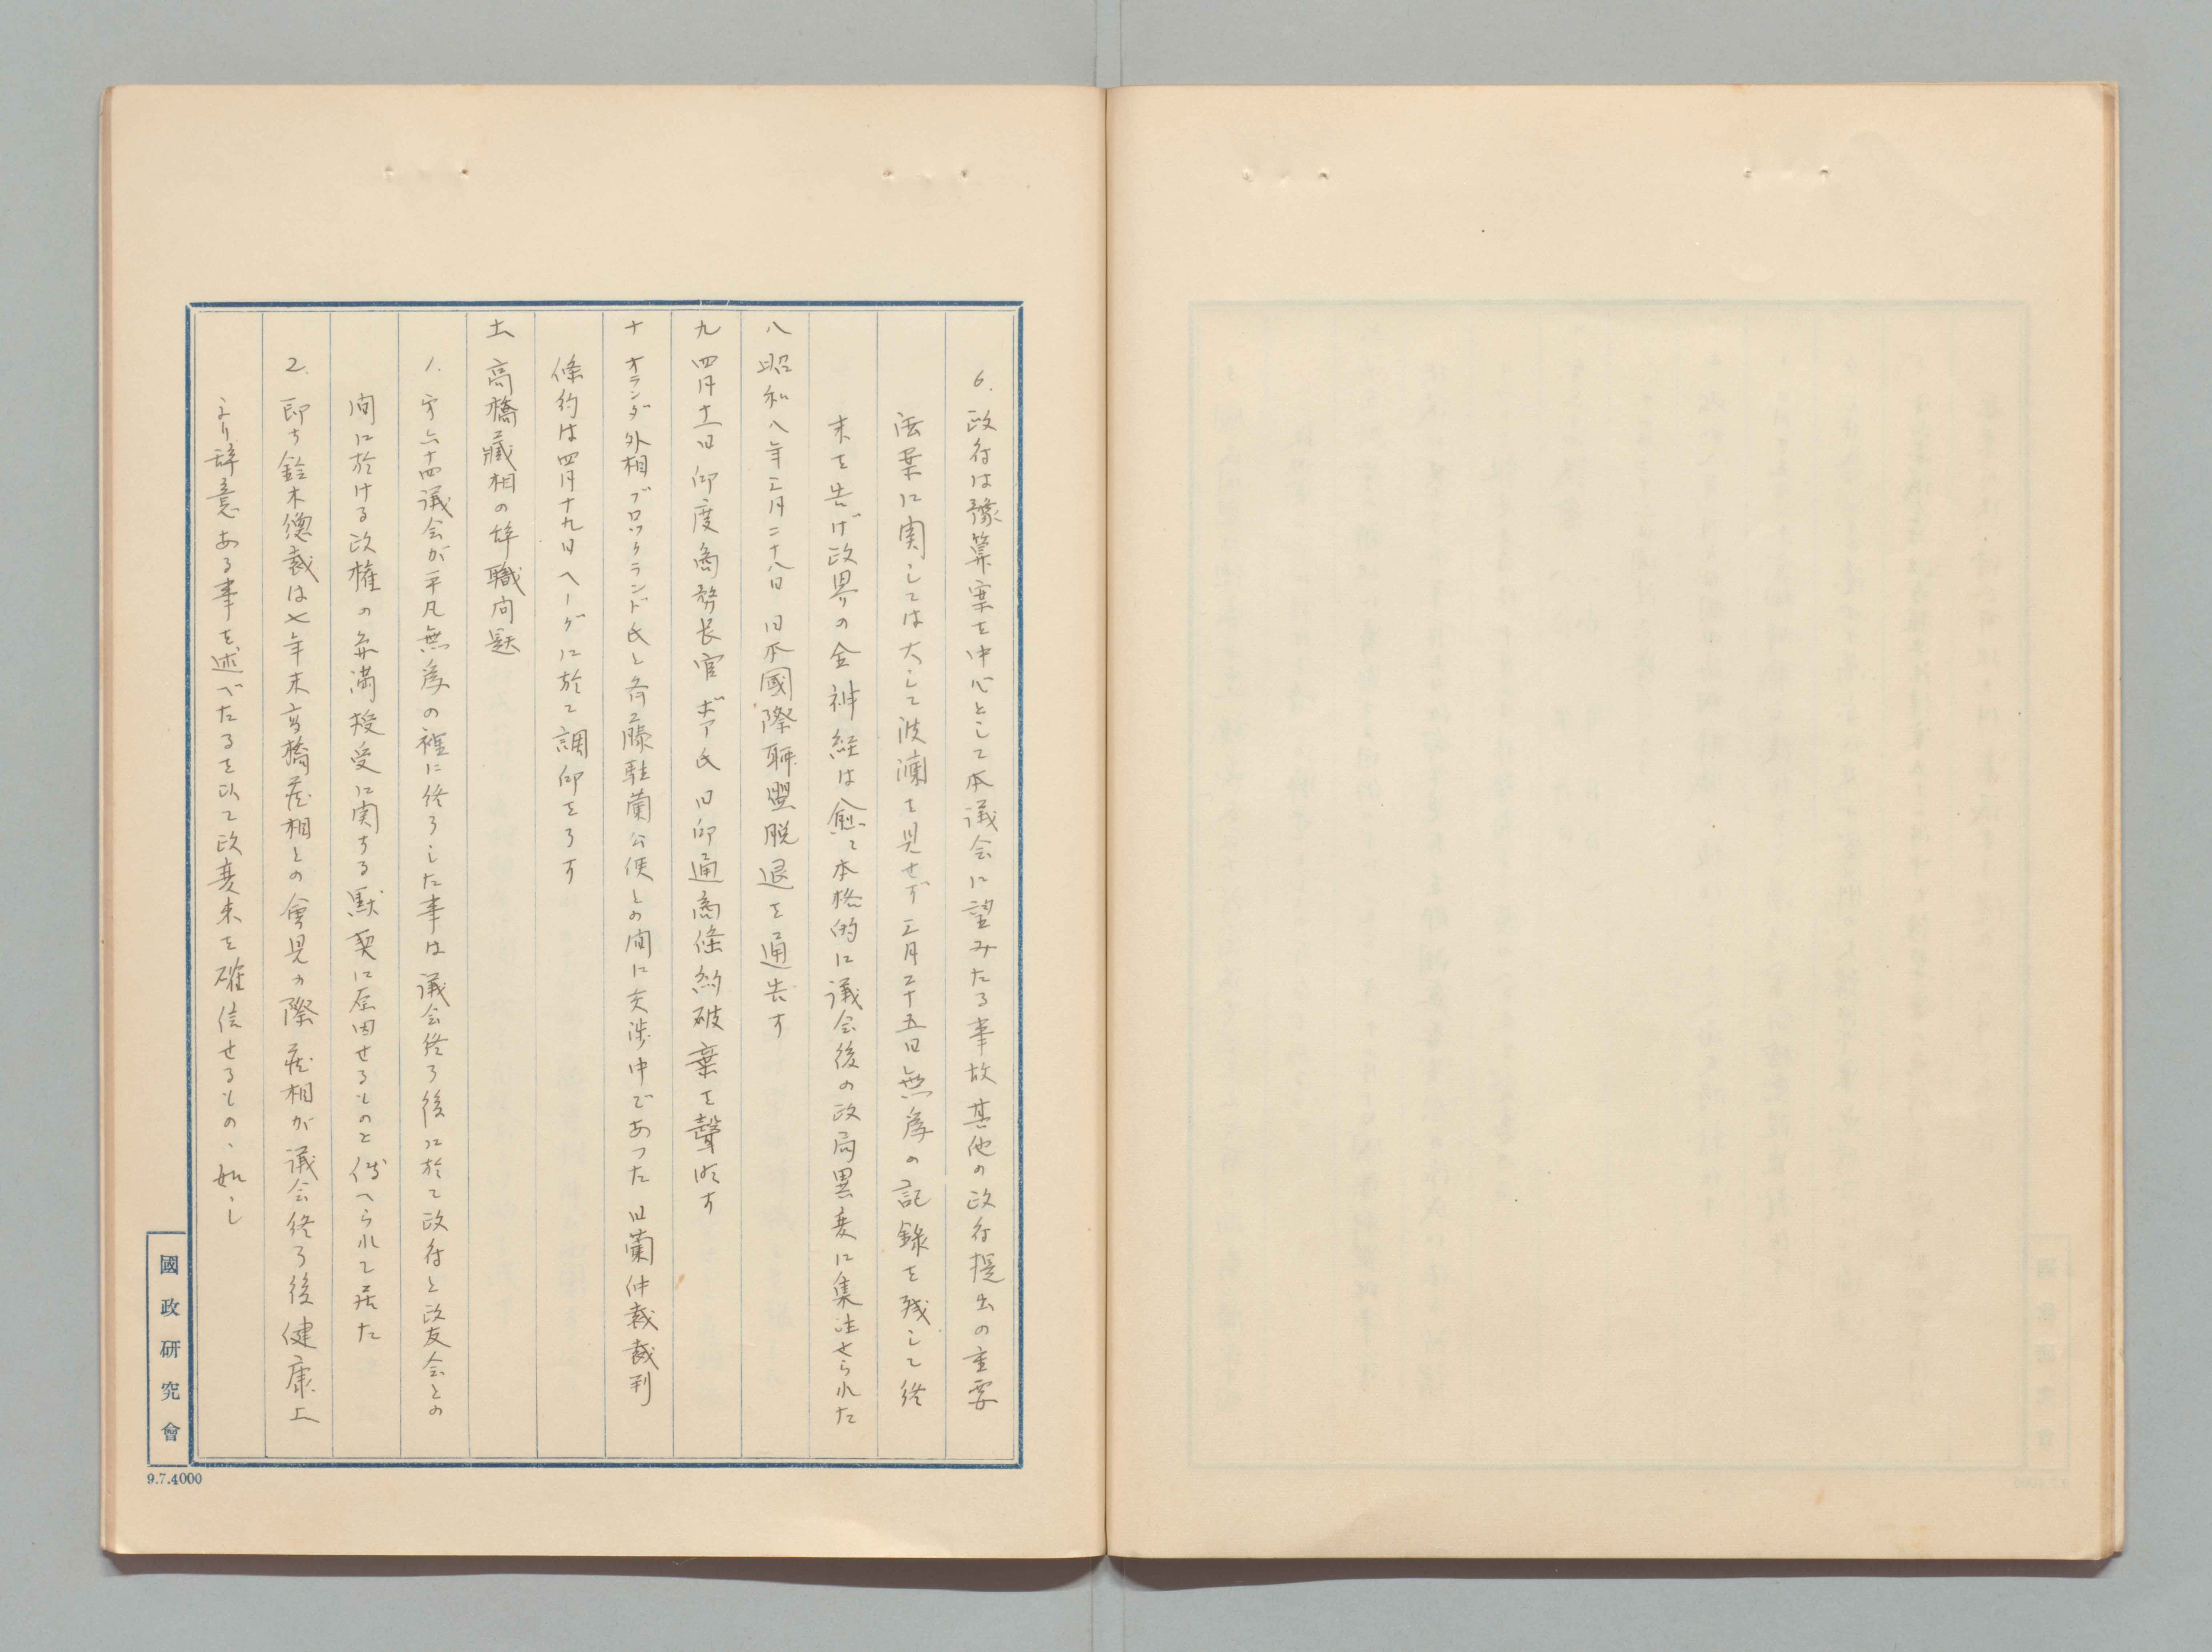 6. 政府は豫算案を中心として本議会に望みたる事故其他の政府提出の重要
法案に関しては大して波瀾を見せず三月二十五日無為の記録を残して終
末を告げ政界の全神経は愈々本格的に議会後の政局異変に集注せられた
八 昭和八年三月二十八日 日本國際聯盟脱退を通告す
九 四月十一日 印度商務长官ボーア氏日印通商條約破棄を聲明す
十 オランダ外相ブロックランド氏と斉藤駐蘭公使との间に交渉中であった 日蘭仲裁裁判
條約は四月十九日ヘーグに於て調印を了す
十一 高橋藏相の辞職问題
1. 第六十四議会が平凡無為の裡に終了した事は議会終了後に於て政府と政友会との
间に於ける政権の円満授受に関する黙契に原因せるものと傳へられて居た
2. 即ち鈴木總裁は七年末高橋蔵相との會見の際蔵相が議会終了後健康上
より辞意ある事を述べたるを以て政変来を確信せるものゝ如し
國政研究會
9.7.4000